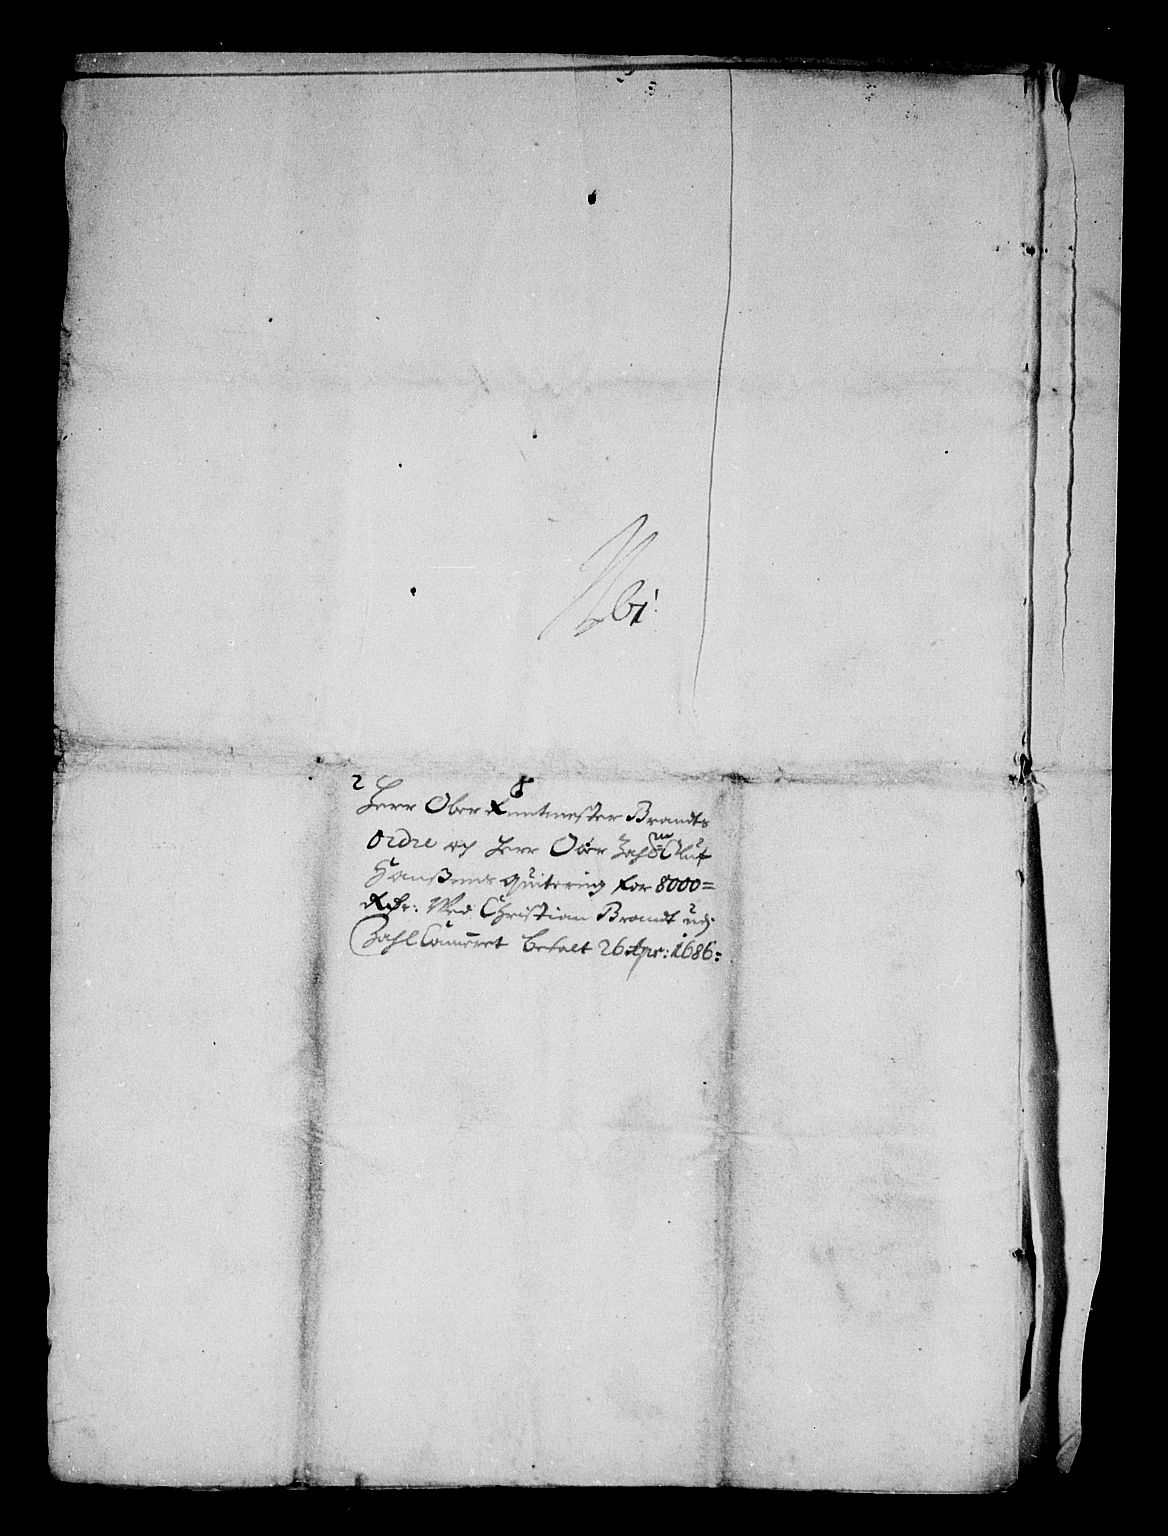 No 61
2 8
Herr Ober Rentmester Brandts
Ordre og Herr Ober Zahlm Oluf
Hanßens quitering for 8000=
Rdr: Med Christian Brandt udj
Zahl Cammeret betalt 26 Apr: 1686=